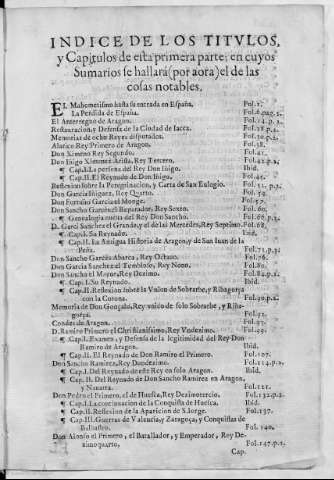 INDICE DE LOS TITVLOS,
y Capitulos de esta primera parte; en cuyos
Sumarios se hallará (por aora) el de las
cosas notables.
EL Mahometismo hasta su entrada en España, Fol.1.
La Perdida de España. Fol.6.pag.2.
El Interregno de Aragon. Fol.14.p.2.
Restauracion, y Defensa de la Ciudad de Iacca. Fol.28.p.2.
Memorias de ocho Reyes disputados. Fol.30.p.2.
Abarice Rey Primero de Aragon. Fol.38.
Don Ximeno Rey Segundo. Fol.41.
Don Iñigo Ximenez Arista, Rey Tercero. Fol.42.p.2.
¶ Cap.I. La persona del Rey Don Iñigo. Ibid.
¶ Cap.II. El Reynado de Don Iñigo. Fol.45.
Reflexion sobre la Peregrinacion, y Carta de San Eulogio. Fol.51. p.2.
Don Garcia Iñiguez, Rey Quarto. Fol.55.
Don Fortuño Garcia el Monge. Fol.57.
Don Sancho Garcinez Reparador, Rey Sexto. Fol.60.
¶ Genealogia mixta del Rey Don Sancho. Fol.66.p.2.
D. Garci Sanchez el Grande, y el de las Mercedes, Rey Septimo. Fol.68.
¶ Cap.I. Su Reynado. Ibid.
¶ Cap.II. La Antigua Historia de Aragon, y de San Iuan de la
Peña. Fol.71.p.2.
Don Sancho Garcés Abarca, Rey Octauo. Fol.76.
Don Garcia Sanchez el Tembloso, Rey Nono. Fol.80.
Don Sancho el Mayor, Rey Dezimo. Fol.82.p.2.
¶ Cap.I. Su Reynado. Ibid.
¶ Cap.II. Reflexion sobre la Vnion de Sobrarbe, y Ribagorça
con la Corona. Fol.90.p.2.
Memoria de Don Gonçalo, Rey vnico de solo Sobrarbe, y Riba-
gorça. Fol.92.
Condes de Aragon. Fol.95.
D. Ramiro Primero el Christianissimo, Rey Vndezimo. Fol.99.
¶ Cap.I. Examen, y Defensa de la legitimidad del Rey Don
Ramiro de Aragon. Ibid.
¶ Cap.II. El Reynado de Don Ramiro el Primero. Fol.107.
Don Sancho Ramirez, Rey Duodezimo. Fol.114.p.2.
¶ Cap.I. Del Reynado de este Rey en solo Aragon. Ibid.
¶ Cap.II. Del Reynado de Don Sancho Ramirez en Aragon,
y Nauarra. Fol.121.
Don Pedro el Primero, el de Huesca, Rey Dezimotercio. Fol.132.p.2.
¶ Cap.I. La continuacion de la Conquista de Huesca. Ibid.
¶ Cap.II. Reflexion de la Aparicion de S. Iorge. Fol.137.
¶ Cap.III. Guerras de Valencia, y Zaragoça, y Conquistas de
Balbastro. Fol.140.
Don Alonso el Primero, el Batallador, y Emperador, Rey De-
zimoquarto. Fol.147.p.2.
Cap.